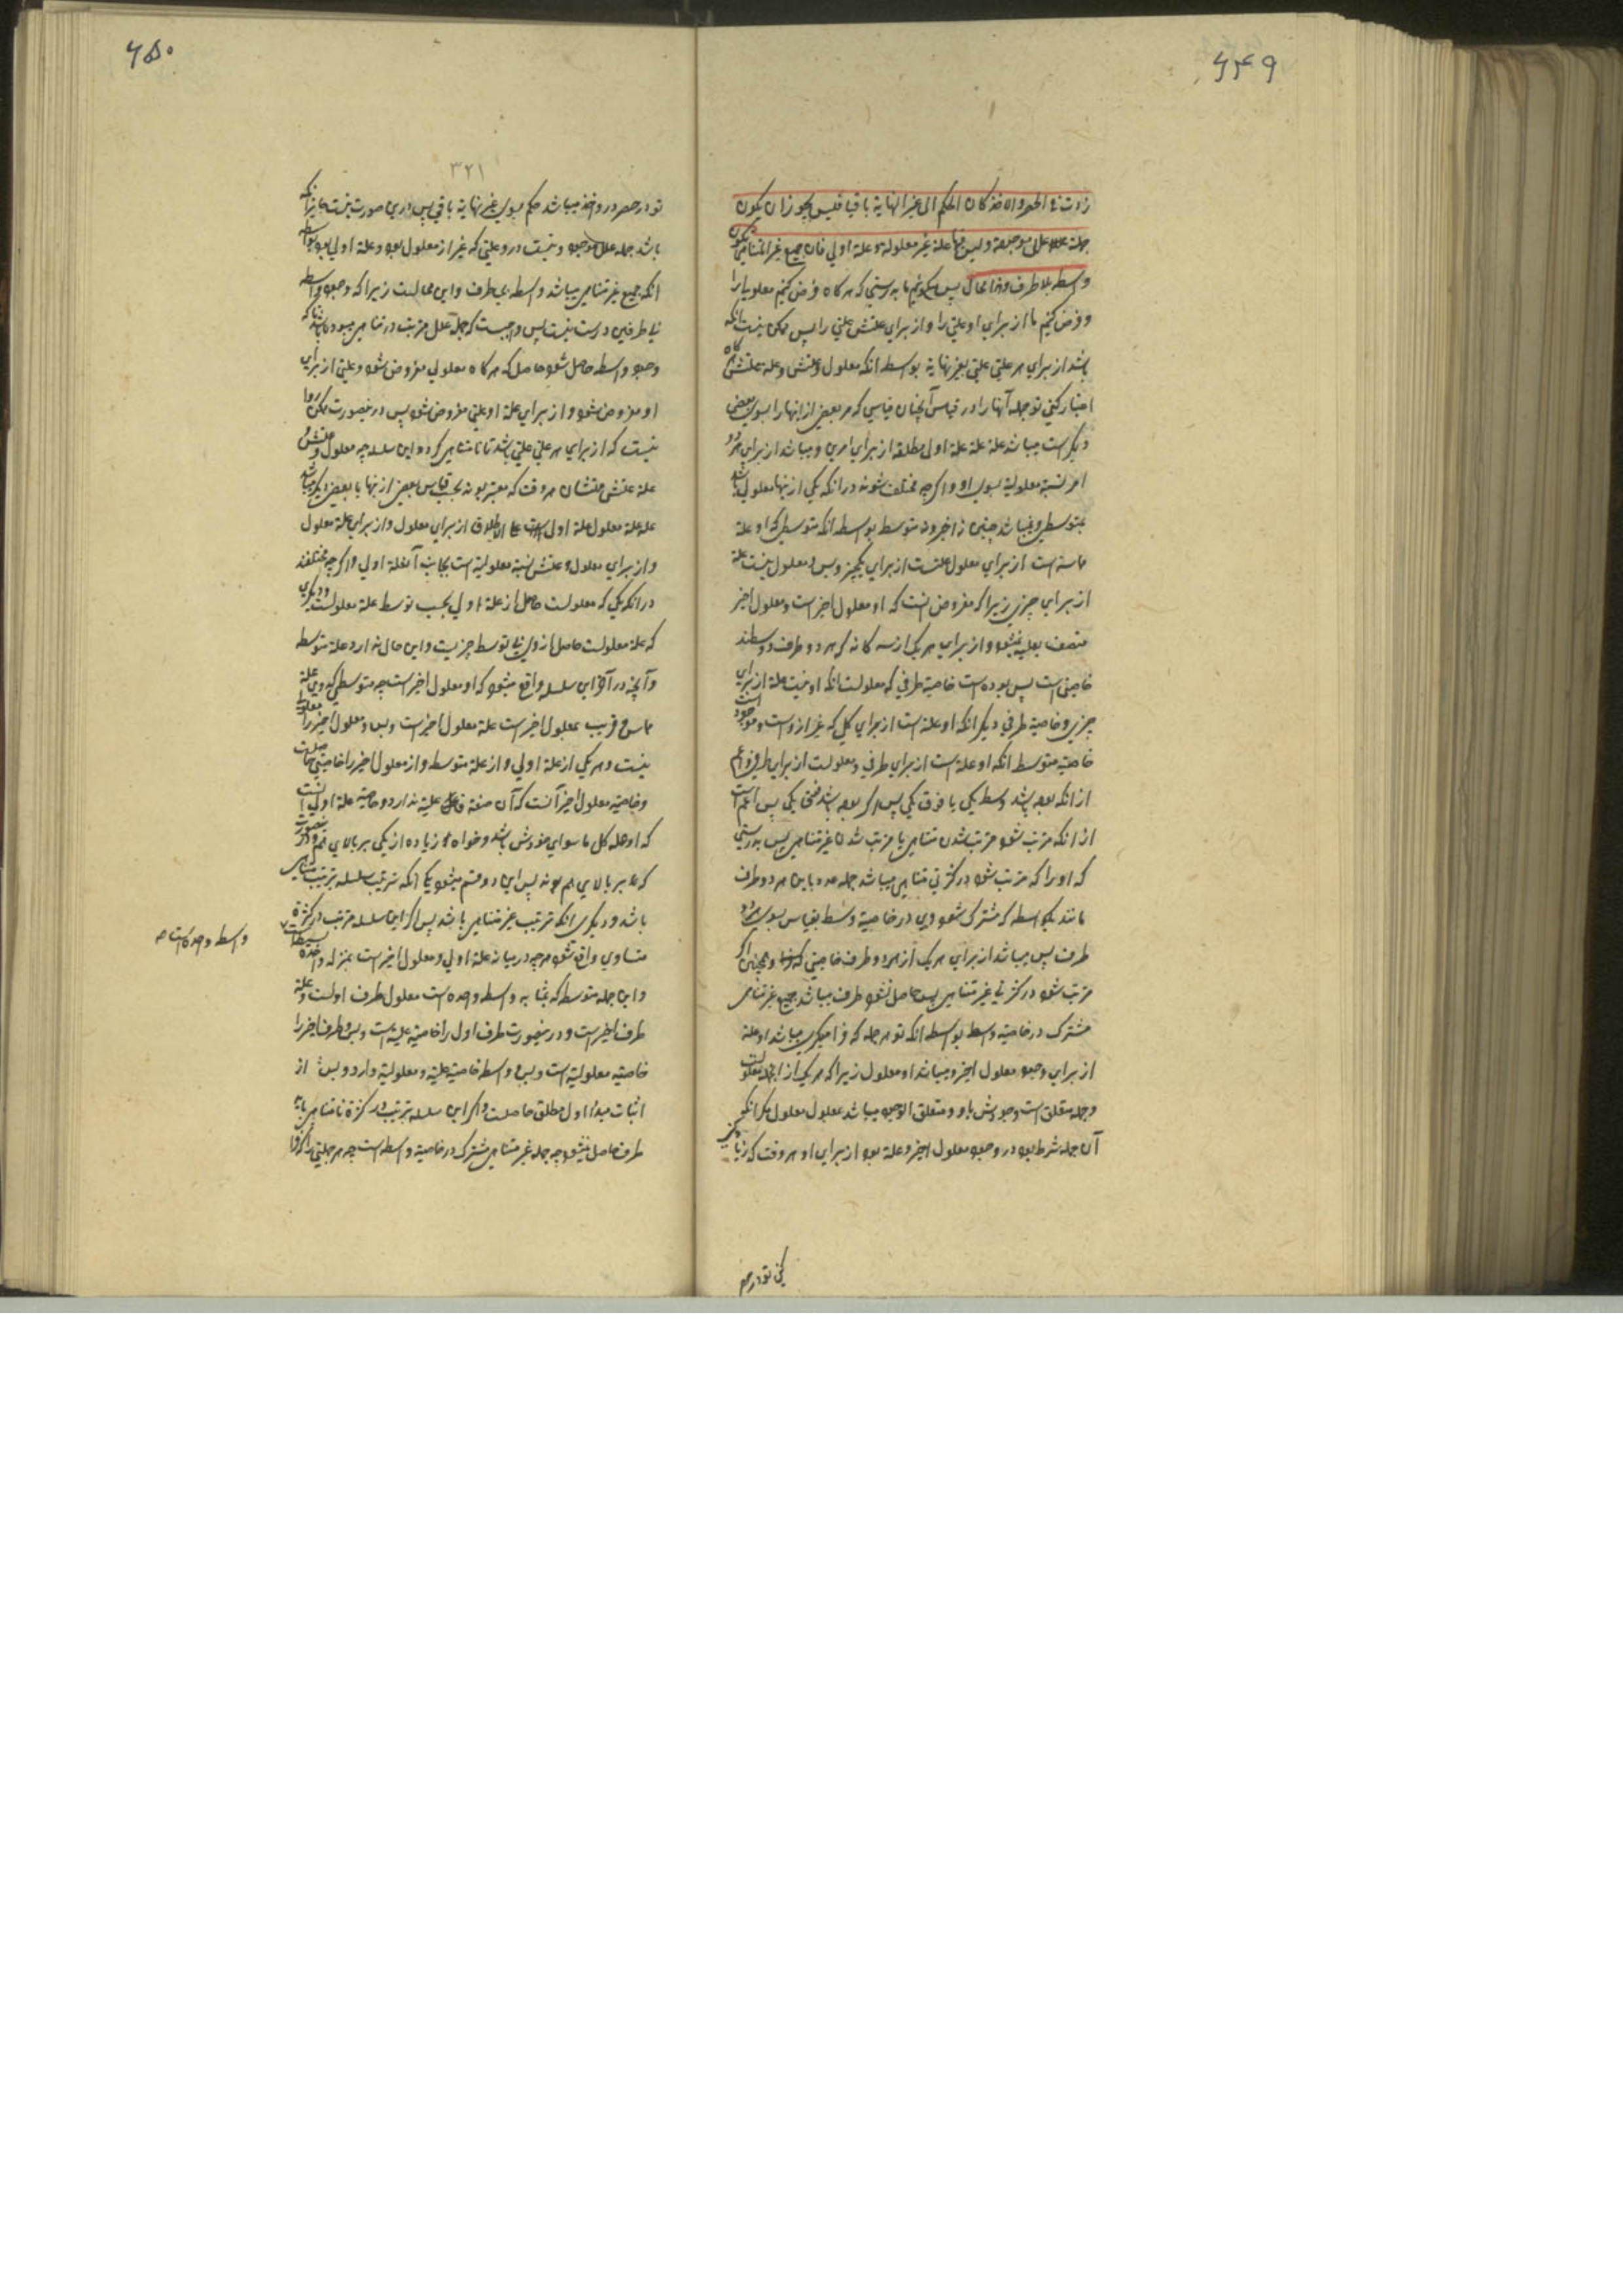 ۶۴۹
زدت فی الحصر والاخذ کان الحکم الی غیر النهایة باقیا فلیس یجوز ان یکون
جملة علل موجودة ولیس فیها علة غیر معلولة وعلة اولی فان جمیع غیر المتناهی یکون
واسطة بلا طرف وهذا محال پس میگوئیم ما بدرستی که هر گاه فرض کنیم معلولی را
و فرض کنیم ما از برای او علتی را و از برای علتش علتی را پس ممکن نیست آنکه
باشد از برای هر علتی علتی بغیر نهایة بواسطه آنکه معلول و علتش و علة علتش هر گاه
اعتبار کنی تو جمله آنها را در قیاس آنچنان قیاسی که مر بعضی از انها را بسوی بعضی
دیگر است میباشد علة علة علة اولی مطلقه از برای امری و میباشد از برای هر دو
امر نسبة معلولیة بسوی او و اگر چه مختلف شوند در آنکه یکی از انها معلول باشد
بمتوسطی و نمیباشد چنین نه اخیر و نه متوسط بواسطه آنکه متوسطی که او علة
ماسه است از برای معلول علتست از برای یکچیز و بس و معلول نیست علة
از برای چیزی زیرا که مفروض انست که او معلول اخیر است و معلول اخیر
متصف بعلیة نمیشود و از برای هر یک از سه گانه که هر دو طرف و وسطند
خاصیتی است پس بوده است خاصیة طرفی که معلولست آنکه او نیست علة از برای
چیزی و خاصیة طرفی دیگر آنکه او علة است از برای کل که غیر از وست و موجود است
خاصیة متوسط آنکه او علة است از برای طرفی و معلولست از برای طرفی و اعم
از آنکه بوده باشد وسط یکی یا فوق یکی پس اگر بوده باشد فوق یکی پس اعم است
از آنکه مرتب شود مرتب شدن متناهی یا مرتب شدن غیر متناهی پس بدرستی
که او را که مرتب شود در کثرتی متناهی میباشد جمله عدد ما بین هر دو طرف
مانند یکواسطه که مشترک شود وی در خاصیة وسط بقیاس بسوی هر دو
طرف پس میباشد از برای هر یک از هر دو طرف خاصیتی و همچنین اگر
مرتب شود در کثرتی غیر متناهی پس حاصل نشود طرف میباشد جمیع غیر متناهی
مشترک در خاصیة واسطه بواسطه آنکه تو هر جمله که فرا میگیری میباشد او علة
از برای وجود معلول اخیر و میباشد او معلول زیرا که هر یک از انها معلولست
و جمله متعلق است وجودش باو و متعلق الوجود میباشد بمعلول معلول مگر آنکه
آن جمله شرط بود در وجود معلول اخیر و علة بود از برای او هر وقت که زیاد
کنی
کنی تو در حصر
۶۵۰
۳۲۱
تو در حصر در و اخذ میباشد حکم بسوی غیر نهایة باقی پس درین صورت نیست جایز آنکه
باشد جمله علل موجود و نیست در و علتی که غیر از معلول بود و علة اولی بود بواسطه
آنکه جمیع غیر متناهی میباشد واسطه بی طرف و این محالست زیرا که وجود واسطه
بی طرفین درست نیست پس واجبست که جمله علل مرتبت در متناهی
وجود واسطه حاصل شود حاصل که هر گاه معلولی مفروض شود و علتی از برای
او مفروض شود و از برای علة او علتی مفروض شود پس درینصورت ممکن و روا
نیست که از برای هر علتی علتی باشد تا نامتناهی گردد این سلسله چه معلول و علتش و
علة علتش علتشان هر وقت که معتبر بوند بحسب قیاس بعضی از انها با بعضی دیگر میباشد
علة علة معلول علة اول است علی الاطلاق از برای معلول و از برای علة معلول
و از برای معلول و علتش نسبة معلولیة است بجانب آنعلة اولی و اگر چه مختلفند
در آنکه یکی که معلولست حاصل از علة اولی بحسب توسط علة معلولست و دیگری
که علة معلولست حاصل از وی بی توسط چیزیست و این حال ندارد علة متوسطه
و آنچه در آخر این سلسله واقع میشود که او معلول اخیر است چه متوسطی که وی علة
ماس و قریب بمعلول اخیر است علة معلول اخیر است و بس و معلول اخیر را معلول
نیست و هر یکی از علة اولی و از علة متوسطه و از معلول اخیر را خاصیتی حاصلست
و خاصیة معلول اخیر آنست که آن صفة علیة ندارد و خاصیة علة اولی آنست
که او علة کل ما سوای خودش باشد و خواه زیاده از یکی بر بالای هم و در صورت
که بر بالای هم بوند پس این دو قسم میشود یکی آنکه ترتیب سلسله ترتیب متناهی
باشد و دیگری آنکه ترتیب غیر متناهی باشد پس اگر این سلسله مرتب در کثرة
متناهی واقع شود هر چه در میانه علة اولی و معلول اخیر است بمنزله واحده
و این جمله متوسطه که بمثابه واسطه واحده است معلول طرف اولست و علة
طرف اخیر است و درینصورت طرف اول را خاصیة علیة است و بس و طرف اخیر را
خاصیة معلولیة است و بس و واسطه خاصیة علیة و معلولیة دارد و بس از
اثبات مبدأ اول مطلق حاصلست و اگر این سلسله ترتیب در کثرة نامتناهی یابد
طرف حاصل نمیشود چه جمله غیر متناهی مشترک در خاصیة واسطه است چه هر جملتی را که فرا
واسطه واحده است